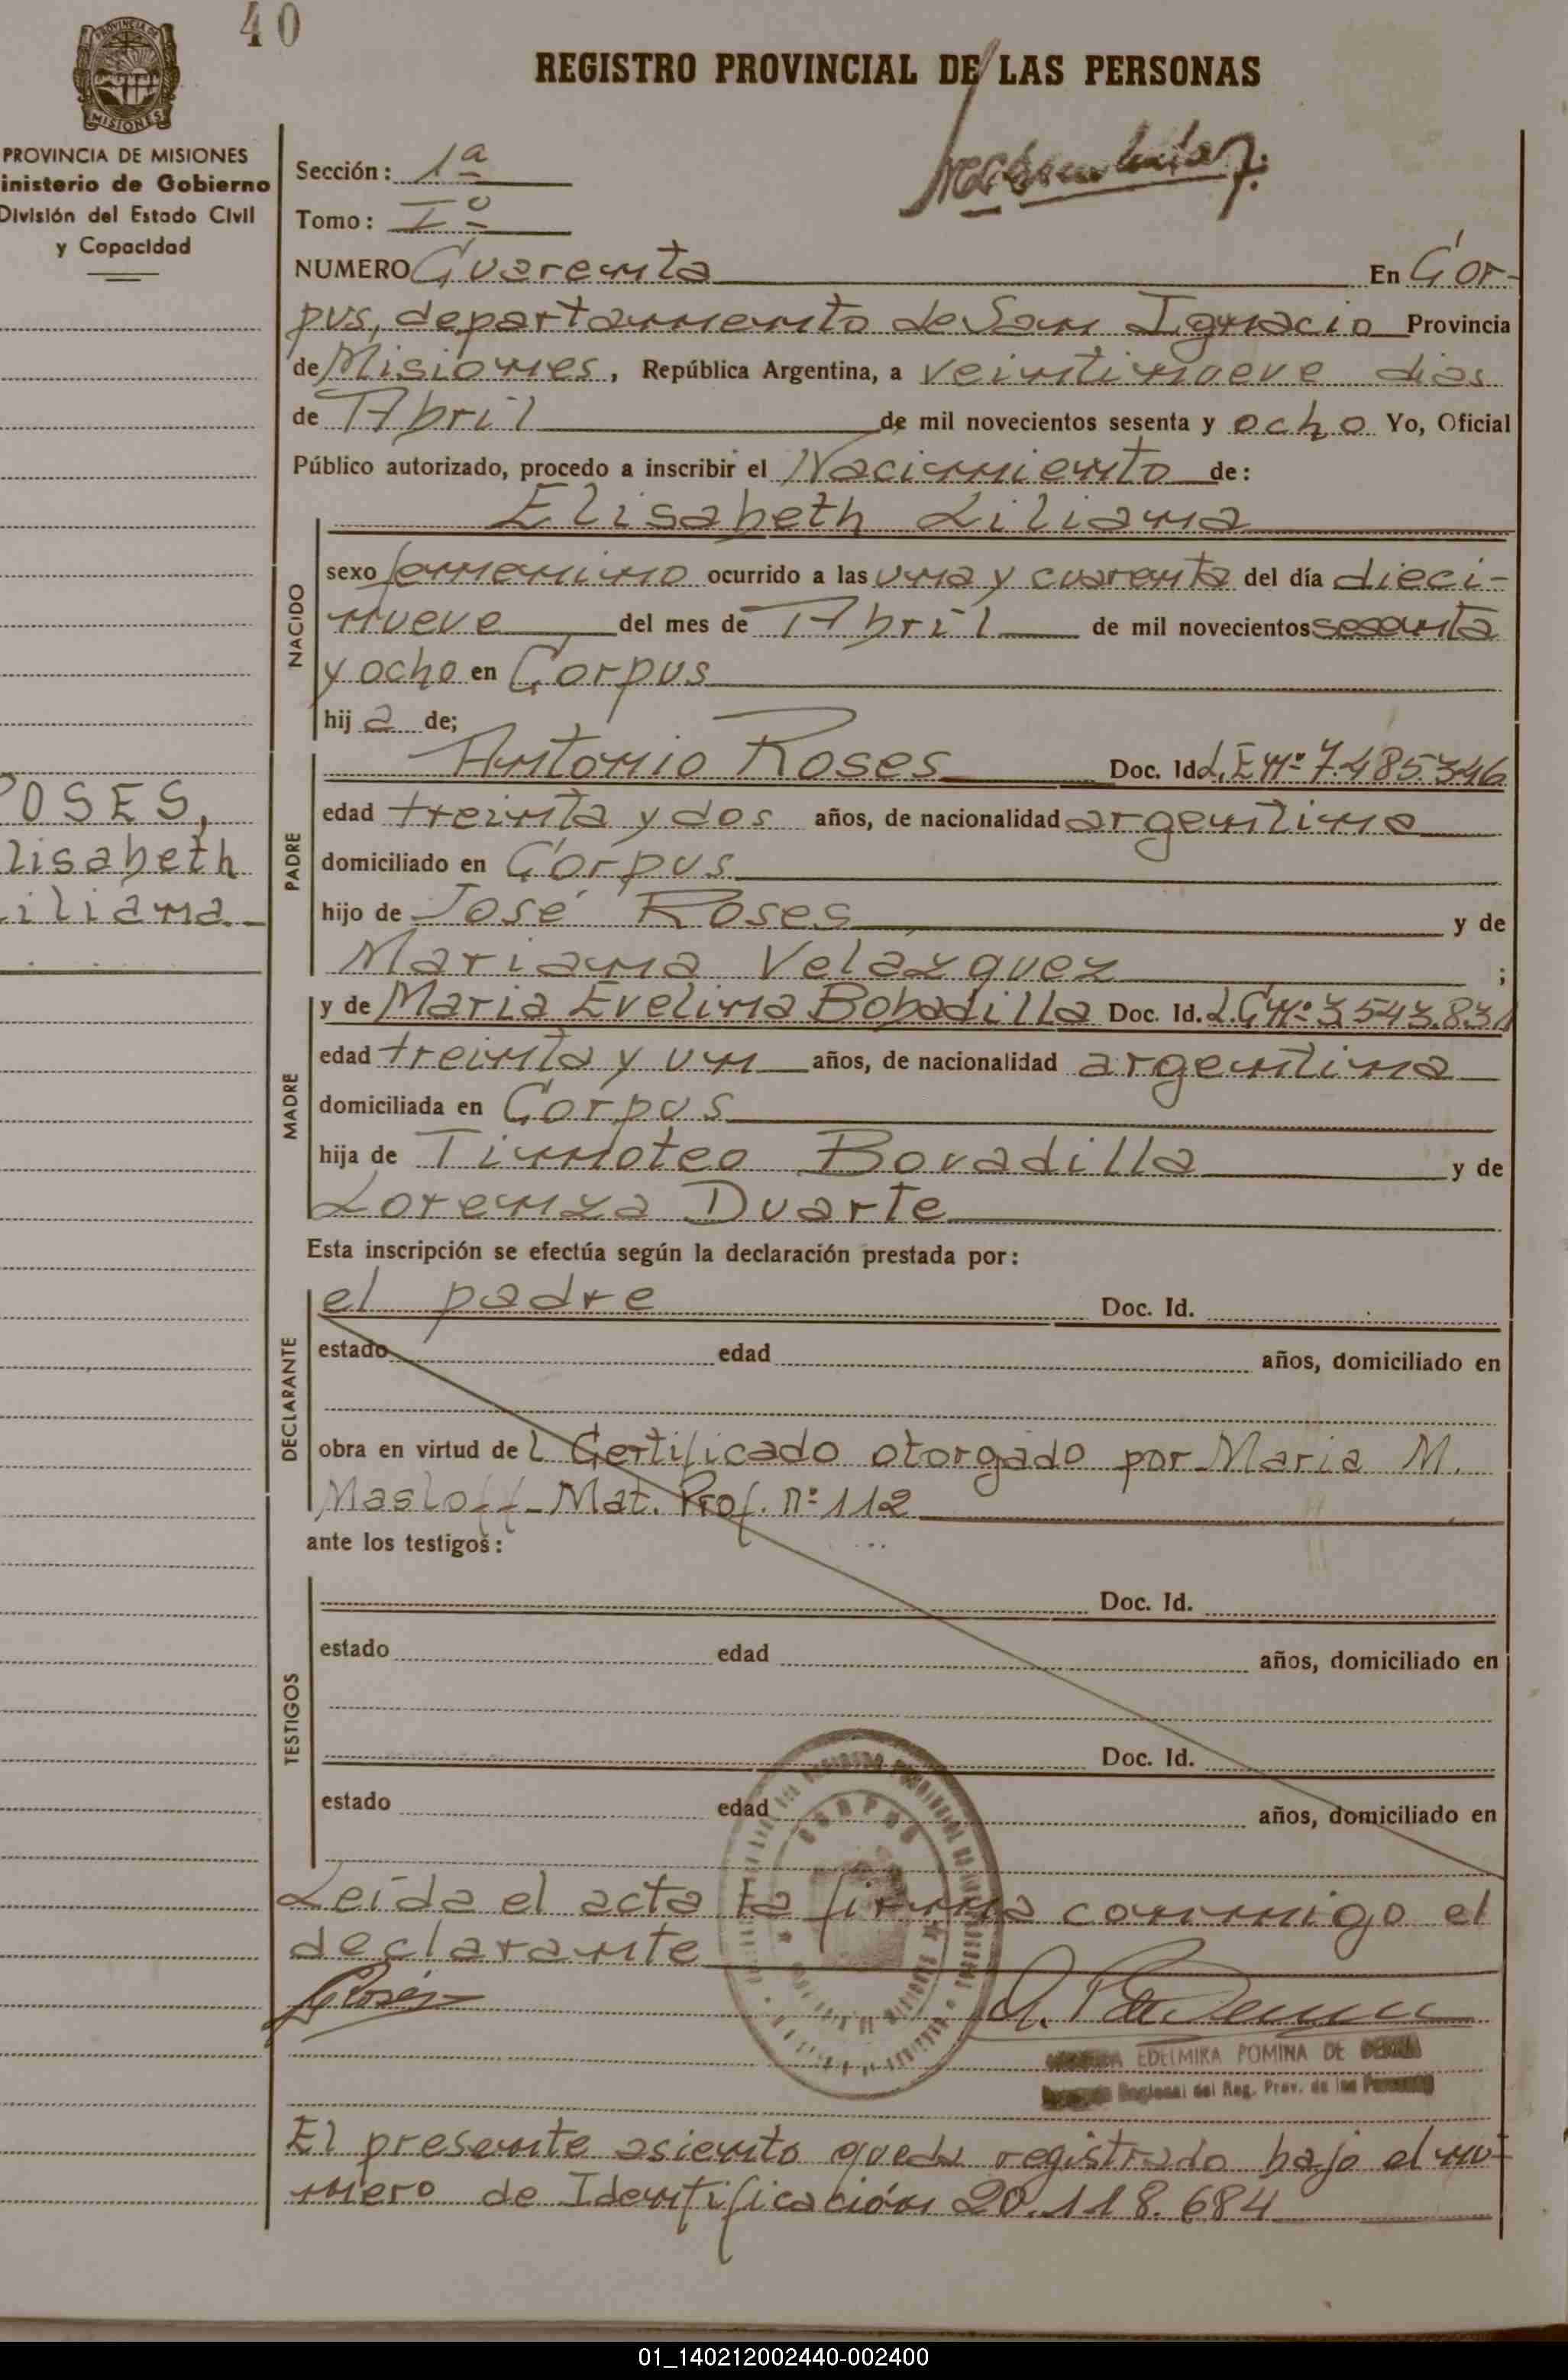 40
REGISTRO PROVINCIAL DE LAS PERSONAS
MISIONES
PROVINCIA DE MISIONES
inisterio de Gobierno
División del Estado Civil
y Capacidad
Sección: 1ª
Tomo: Iº
NUMERO Cuarenta En Cor-
pus, departamento de San Ignacio Provincia
de Misiones, República Argentina, a veintinueve dias
de Abril de mil novecientos sesenta y ocho Yo, Oficial
Público autorizado, procedo a inscribir el Nacimiento de:
Elisabeth Liliana
NACIDO
sexo femenino ocurrido a las una y cuarenta del día dieci-
nueve del mes de Abril de mil novecientos sesenta
y ocho en Corpus
hij a de;
PADRE
Antonio Roses Doc. Id. L.E nº 7.485.346
edad treinta y dos años, de nacionalidad argentino
domiciliado en Corpus
hijo de José Roses y de
Mariana Velázquez ;
OSES,
lisabeth
iliana-
MADRE
y de Maria Evelina Bobadilla Doc. Id. L.C nº 3.543.831
edad treinta y un años, de nacionalidad argentina
domiciliada en Corpus
hija de Timoteo Bovadilla y de
Lorenza Duarte
Esta inscripción se efectúa según la declaración prestada por:
DECLARANTE
el padre Doc. Id.
estado edad años, domiciliado en
obra en virtud de l Certificado otorgado por Maria M.
Masloff- Mat. Prof. nº 112
ante los testigos:
TESTIGOS
Doc. Id.
estado edad años, domiciliado en
Doc. Id.
estado edad años, domiciliado en
CORPUS
Leída el acta la firma conmigo el
declarante
EDELMIRA POMINA DE
Regional del Reg. Prov. de las Personas
El presente asiento queda registrado bajo el nú-
mero de Identificación 20.118.684
01_140212002440-002400